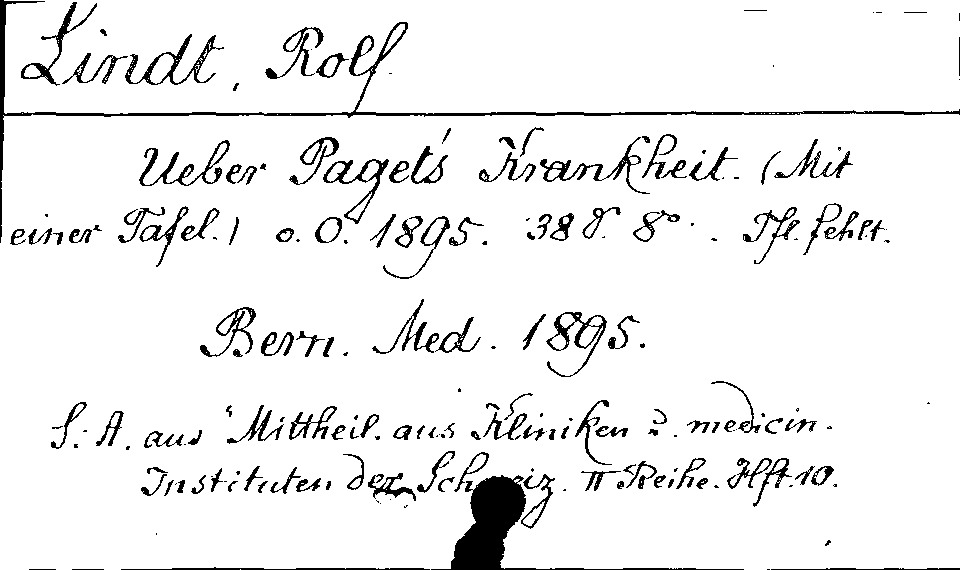 Lindt, Rolf
Ueber Paget's Krankheit. (Mit
einer Tafel.) o. O. 1895. 38 S. 8°. Tfl. fehlt.
Bern. Med. 1895.
S. A. aus "Mittheil. aus Kliniken u. medicin.
Instituten der Schweiz. II Reihe. Hft. 10.